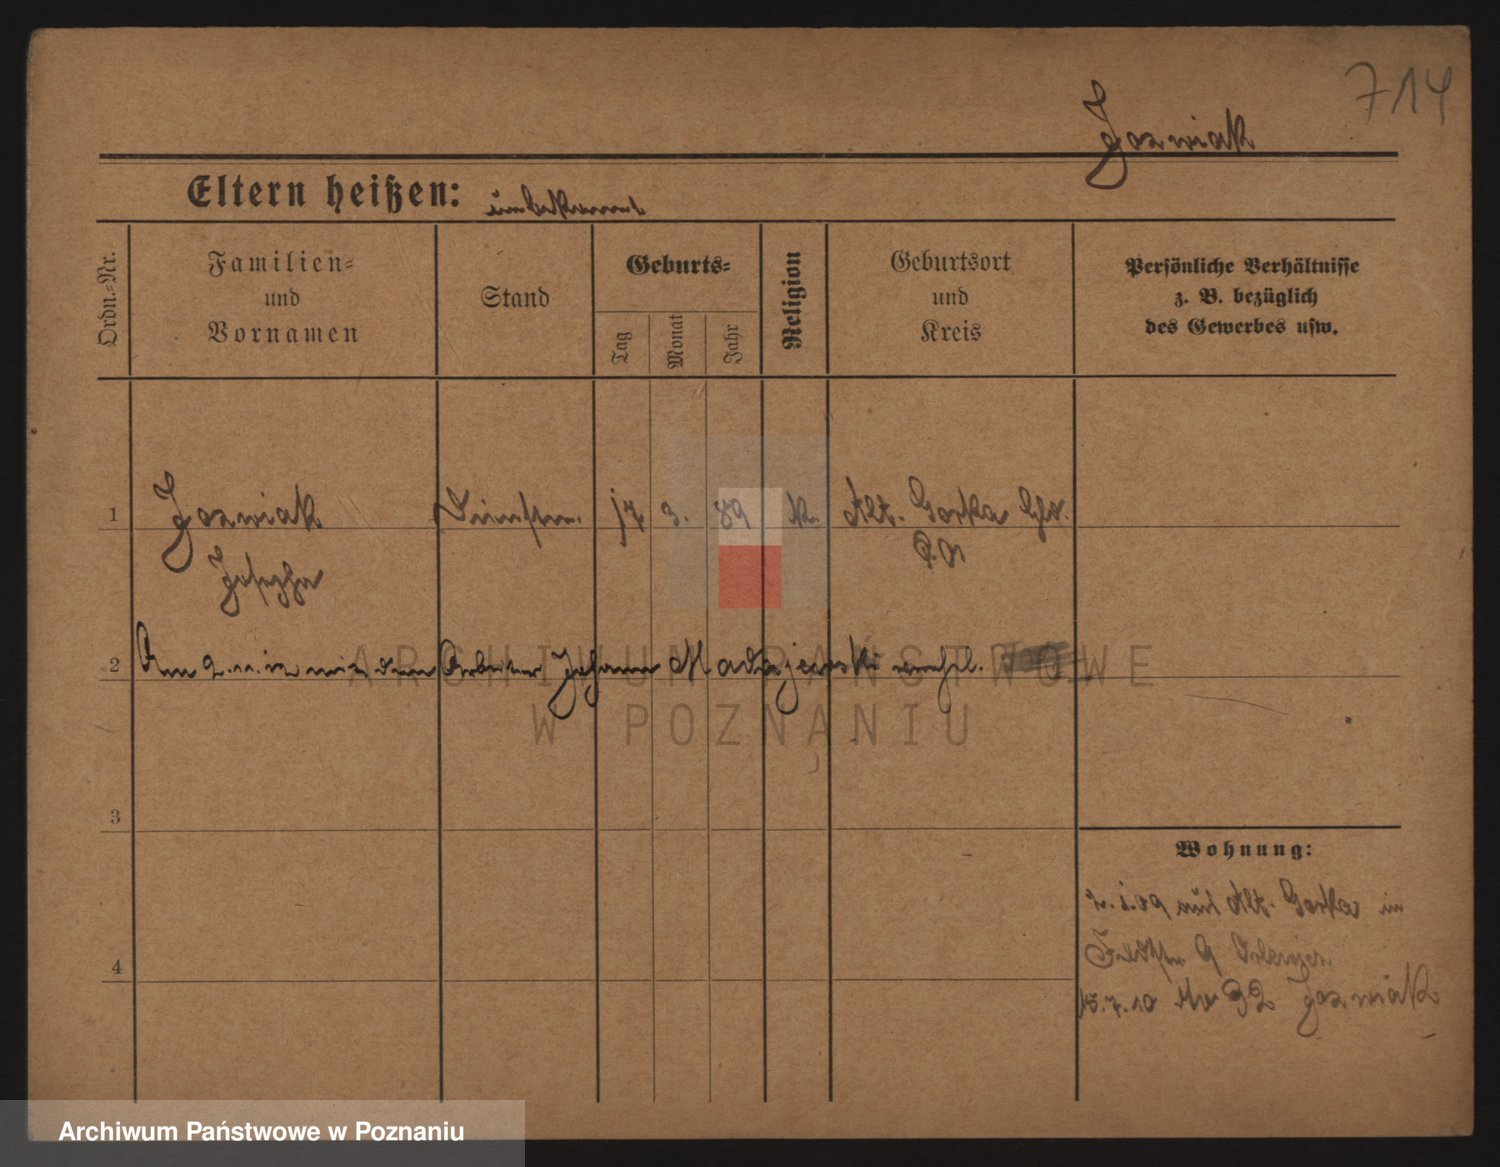 714
Jozwiak
Eltern heißen: unbekannt
Ordn.=Nr.
Familien=
und
Vornamen
Stand
Geburts=
Tag
Monat
Jahr
Religion
Geburtsort
und
Kreis
Persönliche Verhältnisse
z. B. bezüglich
des Gewerbes usw.
1
Jozwiak
Josepha
17. 3. 89 k. Alt. Gorka
2
Am 2.11.12 mit dem Arbeiter Johann Madajewski verehel.
ARCHIWUM PAŃSTWOWE
W POZNANIU
3
Wohnung:
2.1.09 aus Alt. Gorka in
4
15.7.10 No 32 Jozwiak
Archiwum Państwowe w Poznaniu